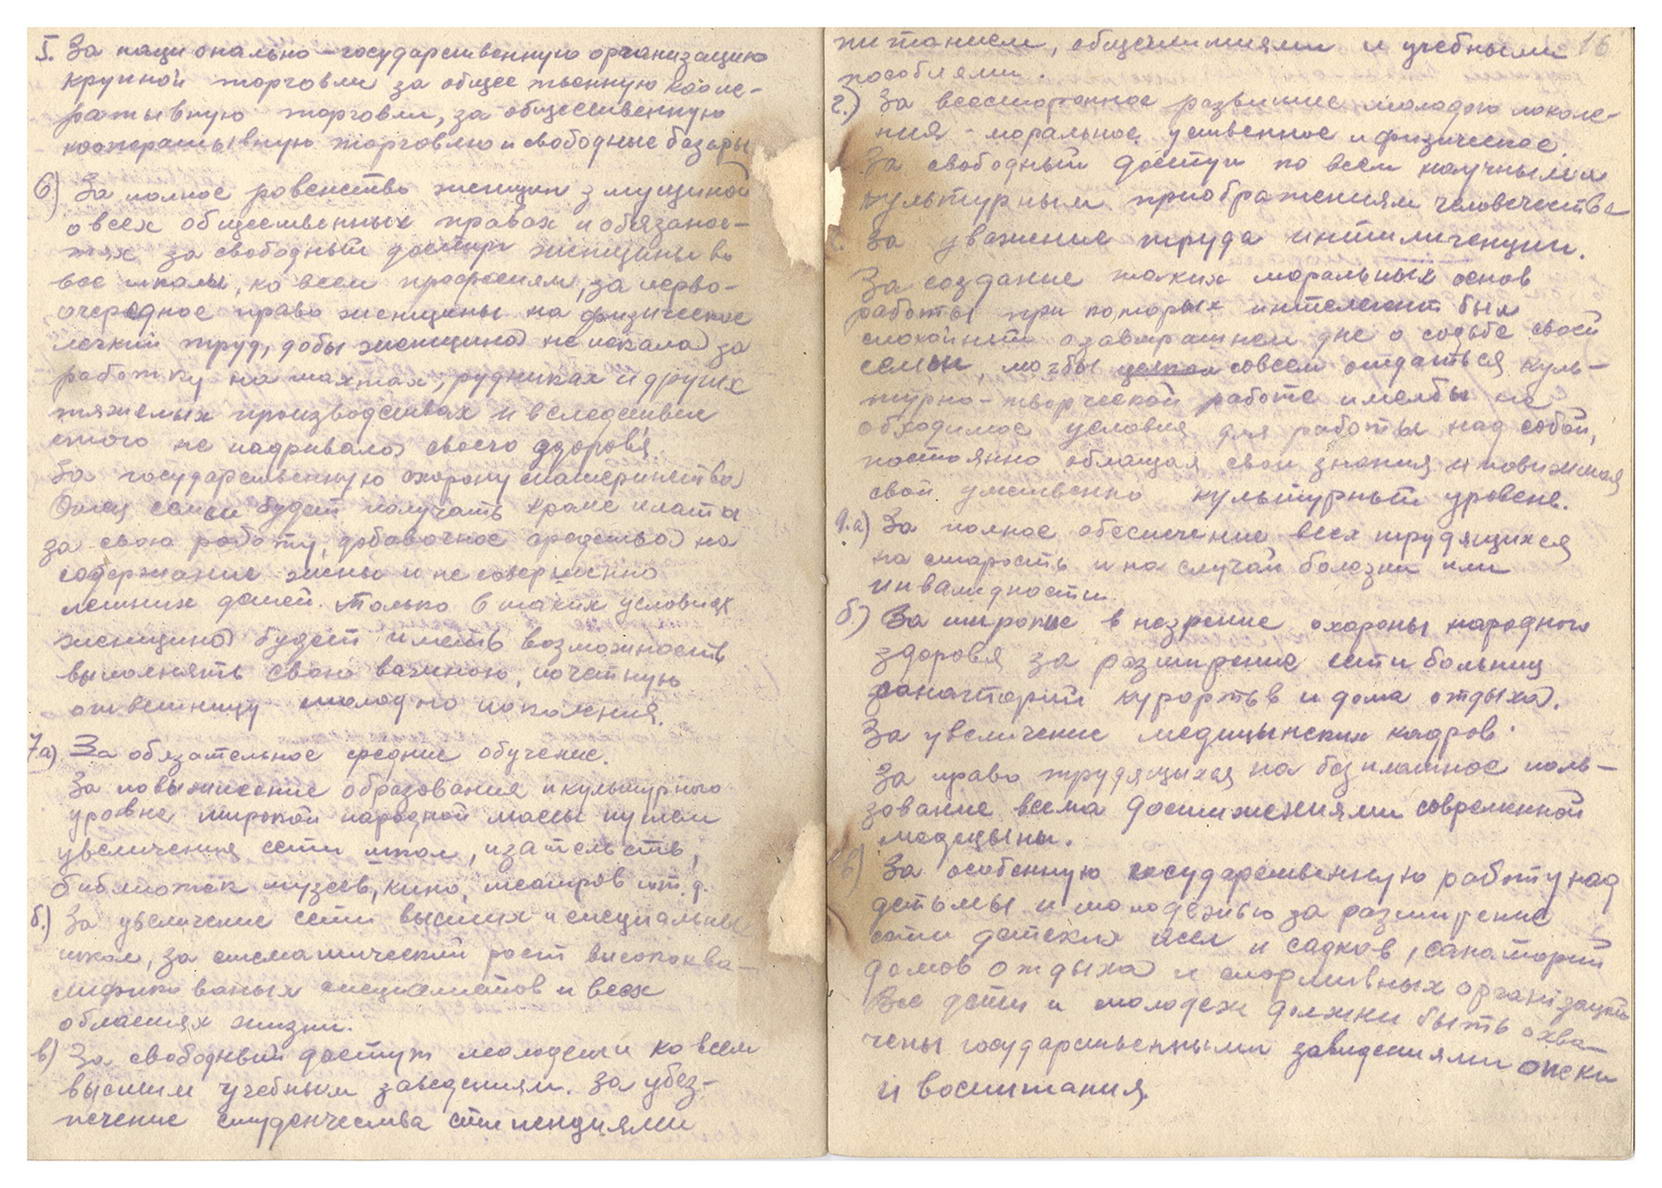 5. За наци онально-государственную организацию
крупной торговли за общее твенную коопе-
ративную торговли, за общественную
кооперативную торговлю и свободные базары
6) За полное равенство женщин з мущиной
в всех общественных правах и обязанос-
тях за свободный доступ женщины во
все школы, ко всем професиям, за перво-
очередное право женщины на физическое
легкий труд, добы женщина не искала за
работку на шахтах, рудниках и других
тяжелых производствах и вследствие
этого не надривала своего здоровя.
За государственную охорону материнства
Отец семьи будет получать кроме платы
за свою работу, добавочное средства на
содержание жены и не совершенно
летних детей. Только в таких условиях
женщина будет иметь возможность
выполнять свою важною, почетную
молодно поколения.
7а) За обязательное средние обучение.
За повышение образования и культурного
уровне широкой народной массы путем
увеличения сети школ, изательств,
библиотек музеев, кино, театров и т. д.
б.) За увеличение сети высших и специальных
школ, за систематический рост висококва-
лифико ваных специалистов и всех
областях жизни.
в) За свободный доступ молодежи ко всем
высшим учебным заведениям. За убез-
печение студенчества стипендиями
питанием, общежитиями и учебными 16
пособиями.
г.) За всесторонное развитие молодого поколе-
ния - моральное, умственное и физическое
За свободный доступ по всем научным и
культурным приображениям человечества
За уважение труда интилигенции.
За создание таких моральных основ
работы при которых интелегент был
спокойный о завтрашнем дне о судьбе своей
семьи, мог бы совсем отдаться куль-
турно-творческой работе имел бы не
обходимое условия для работы над собой,
постоянно обагащая свои знания и повижая
свой умственно культурный уровень.
9.а) За полное обеспечение всех трудящихся
на старость и на случай болезни или
инвалидности.
б) За широкие в незрение охороны народного
здоровя за розширение сети больниц
санаторий курортв и дома отдыха.
За увеличение медицынских кадров.
За право трудящихся на безплатное поль-
зование всема достижениями современной
медецыны.
в) За особенную государственную работу над
детьмы и молодежью за разширение
сети детских ясел и садков, санаторий
домов отдыха и спортивных організацій
Все дети и молодеж должны быть охва-
чены государственными заведениями опеки
и воспитания.